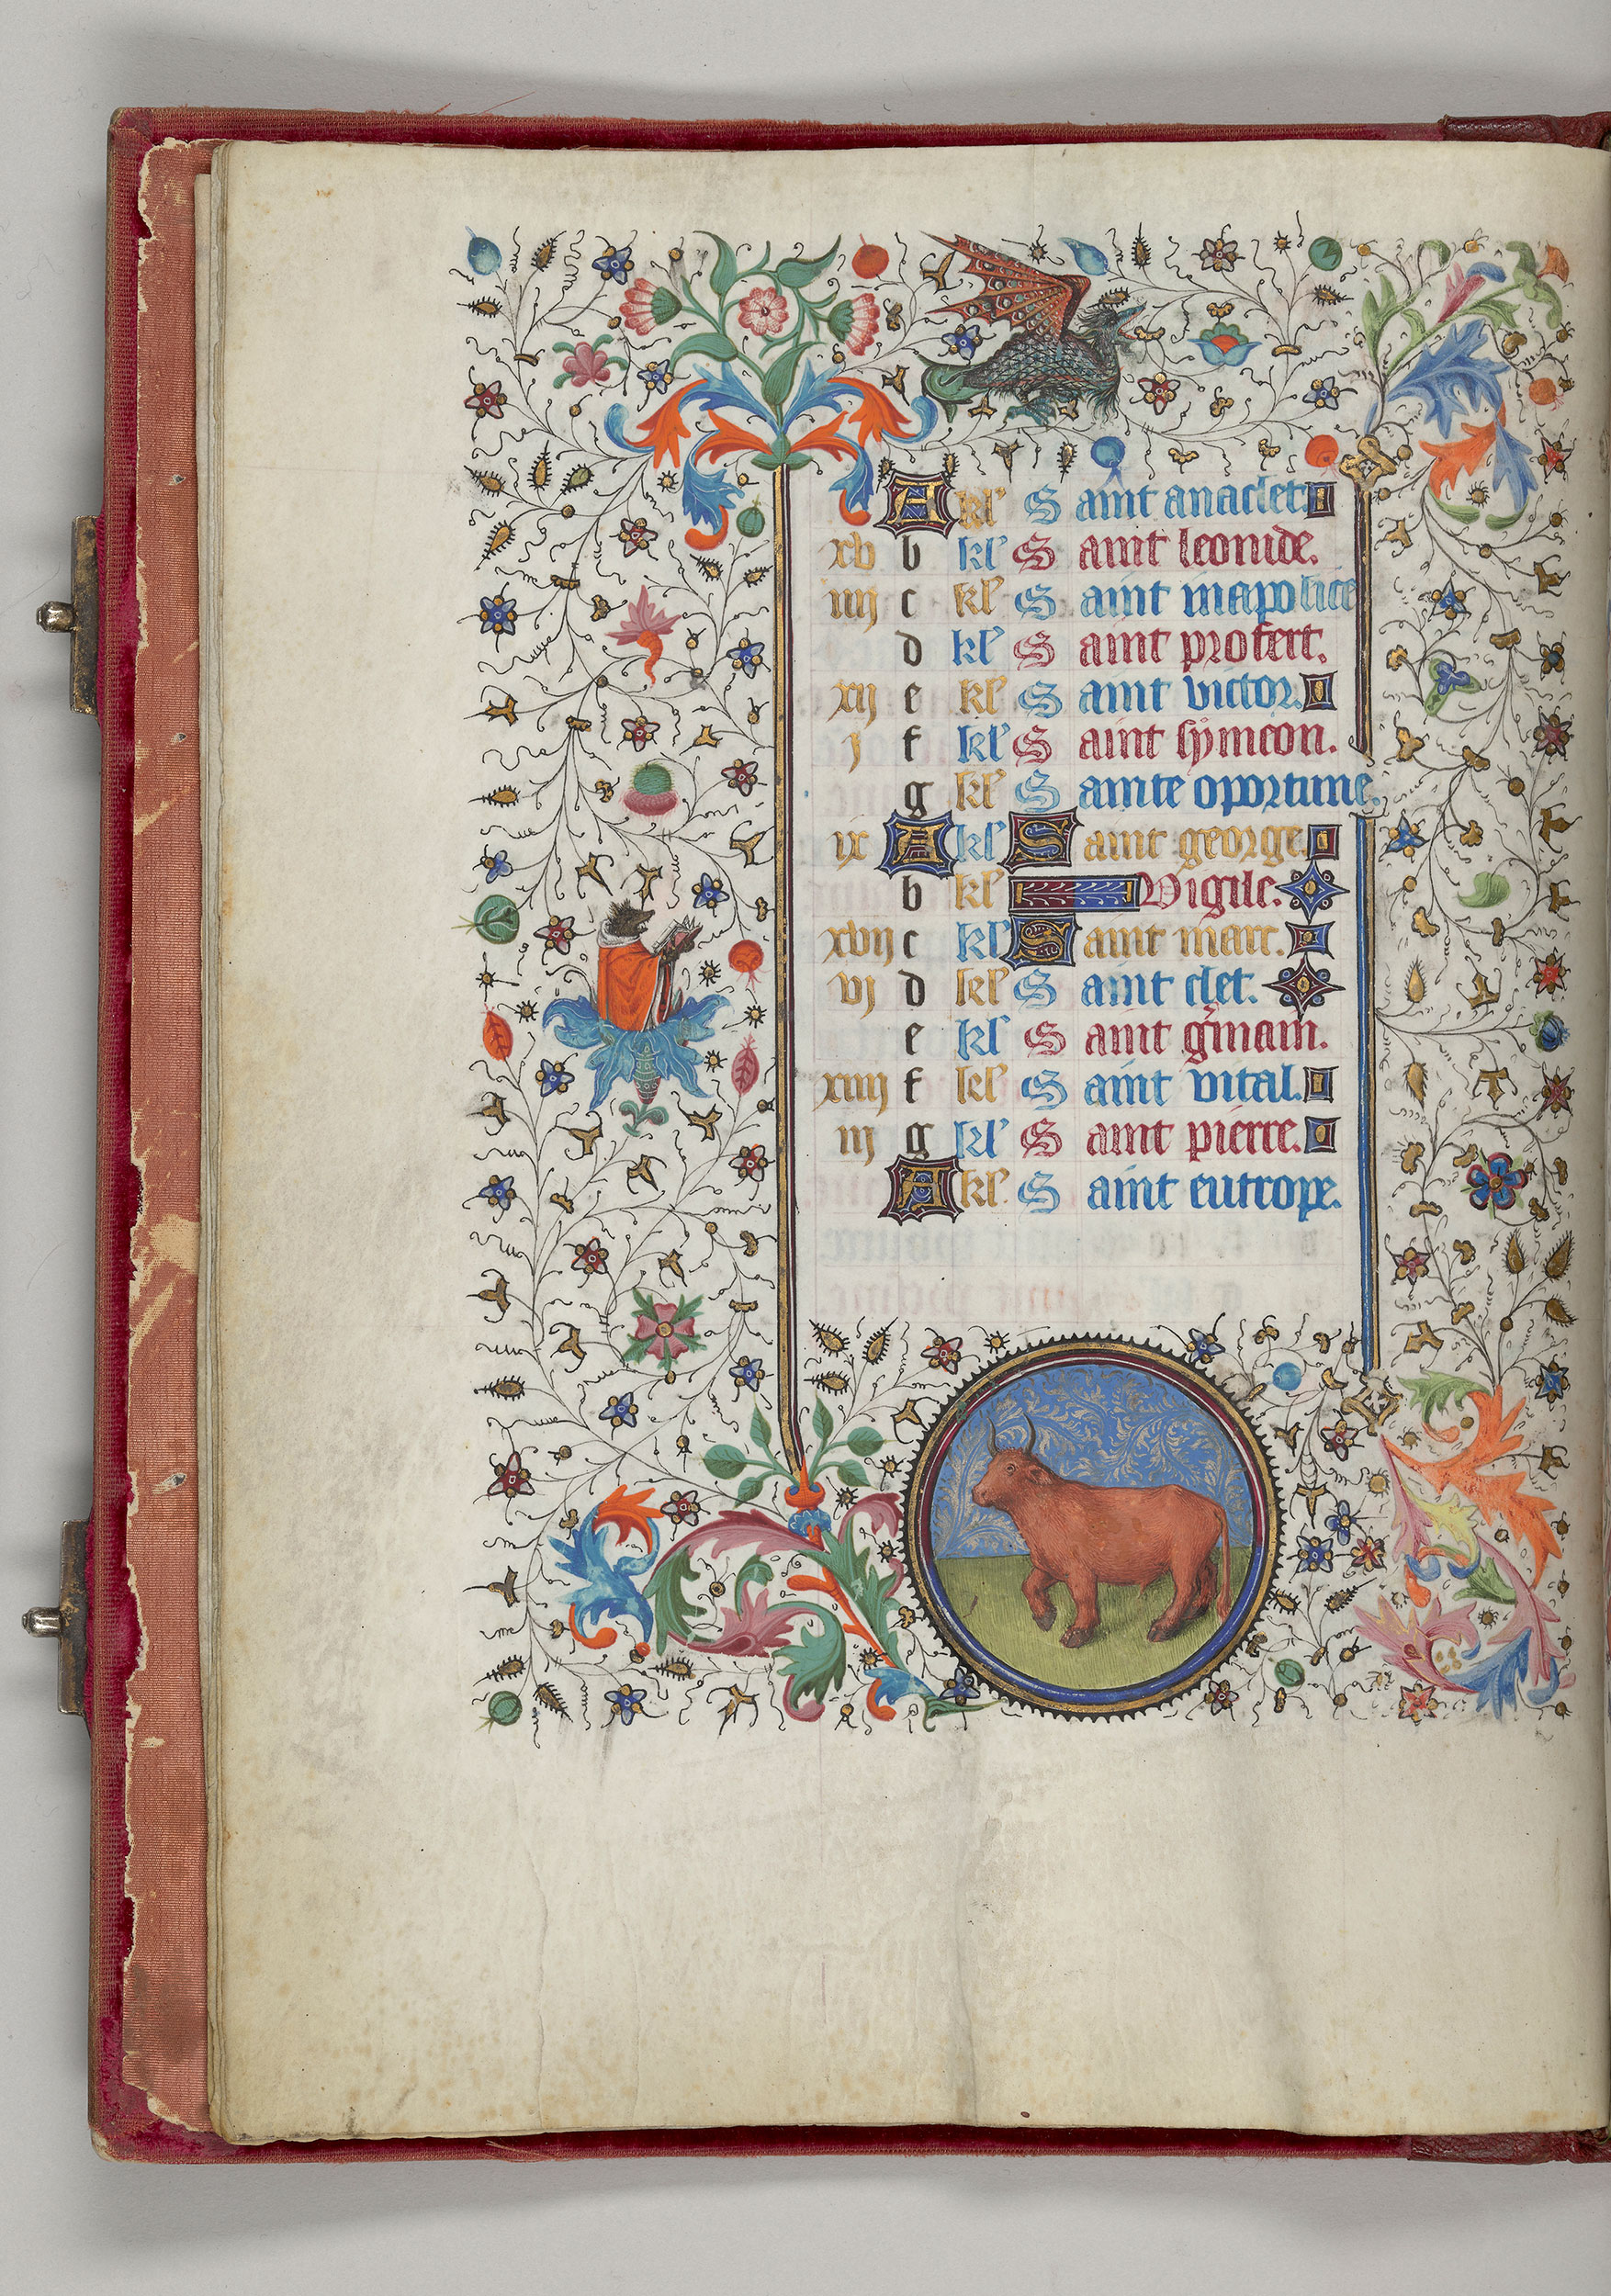 A kl' Saint anaclet
xv b kl' Saint leonide.
iiij c kl' Saint mapolice
d kl' Saint profert.
xij e kl' Saint victor.
j f kl' Saint symeon.
g kl' Sainte oportune.
ix A kl' Saint george
b kl' Vigile.
xvij c kl' Saint marc.
vj d kl' Saint clet.
e kl' Saint g'main.
xiiij f kl' Saint vital.
iij g kl' Saint pierre.
A kl' Saint eutrope.